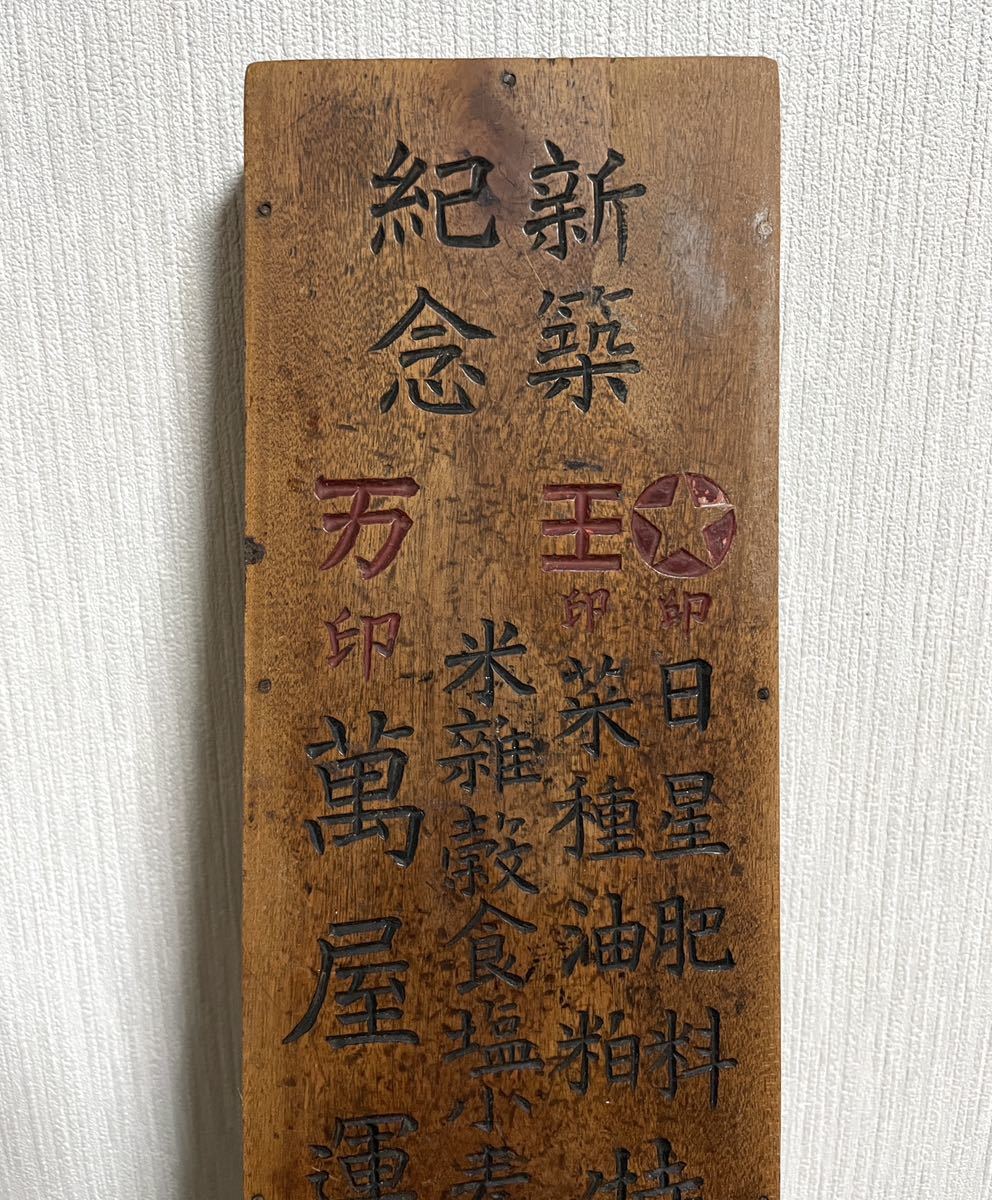 新築
紀念
印 日星肥料
王印 菜種油粕特
米雜穀食塩小麦
万印 萬屋運